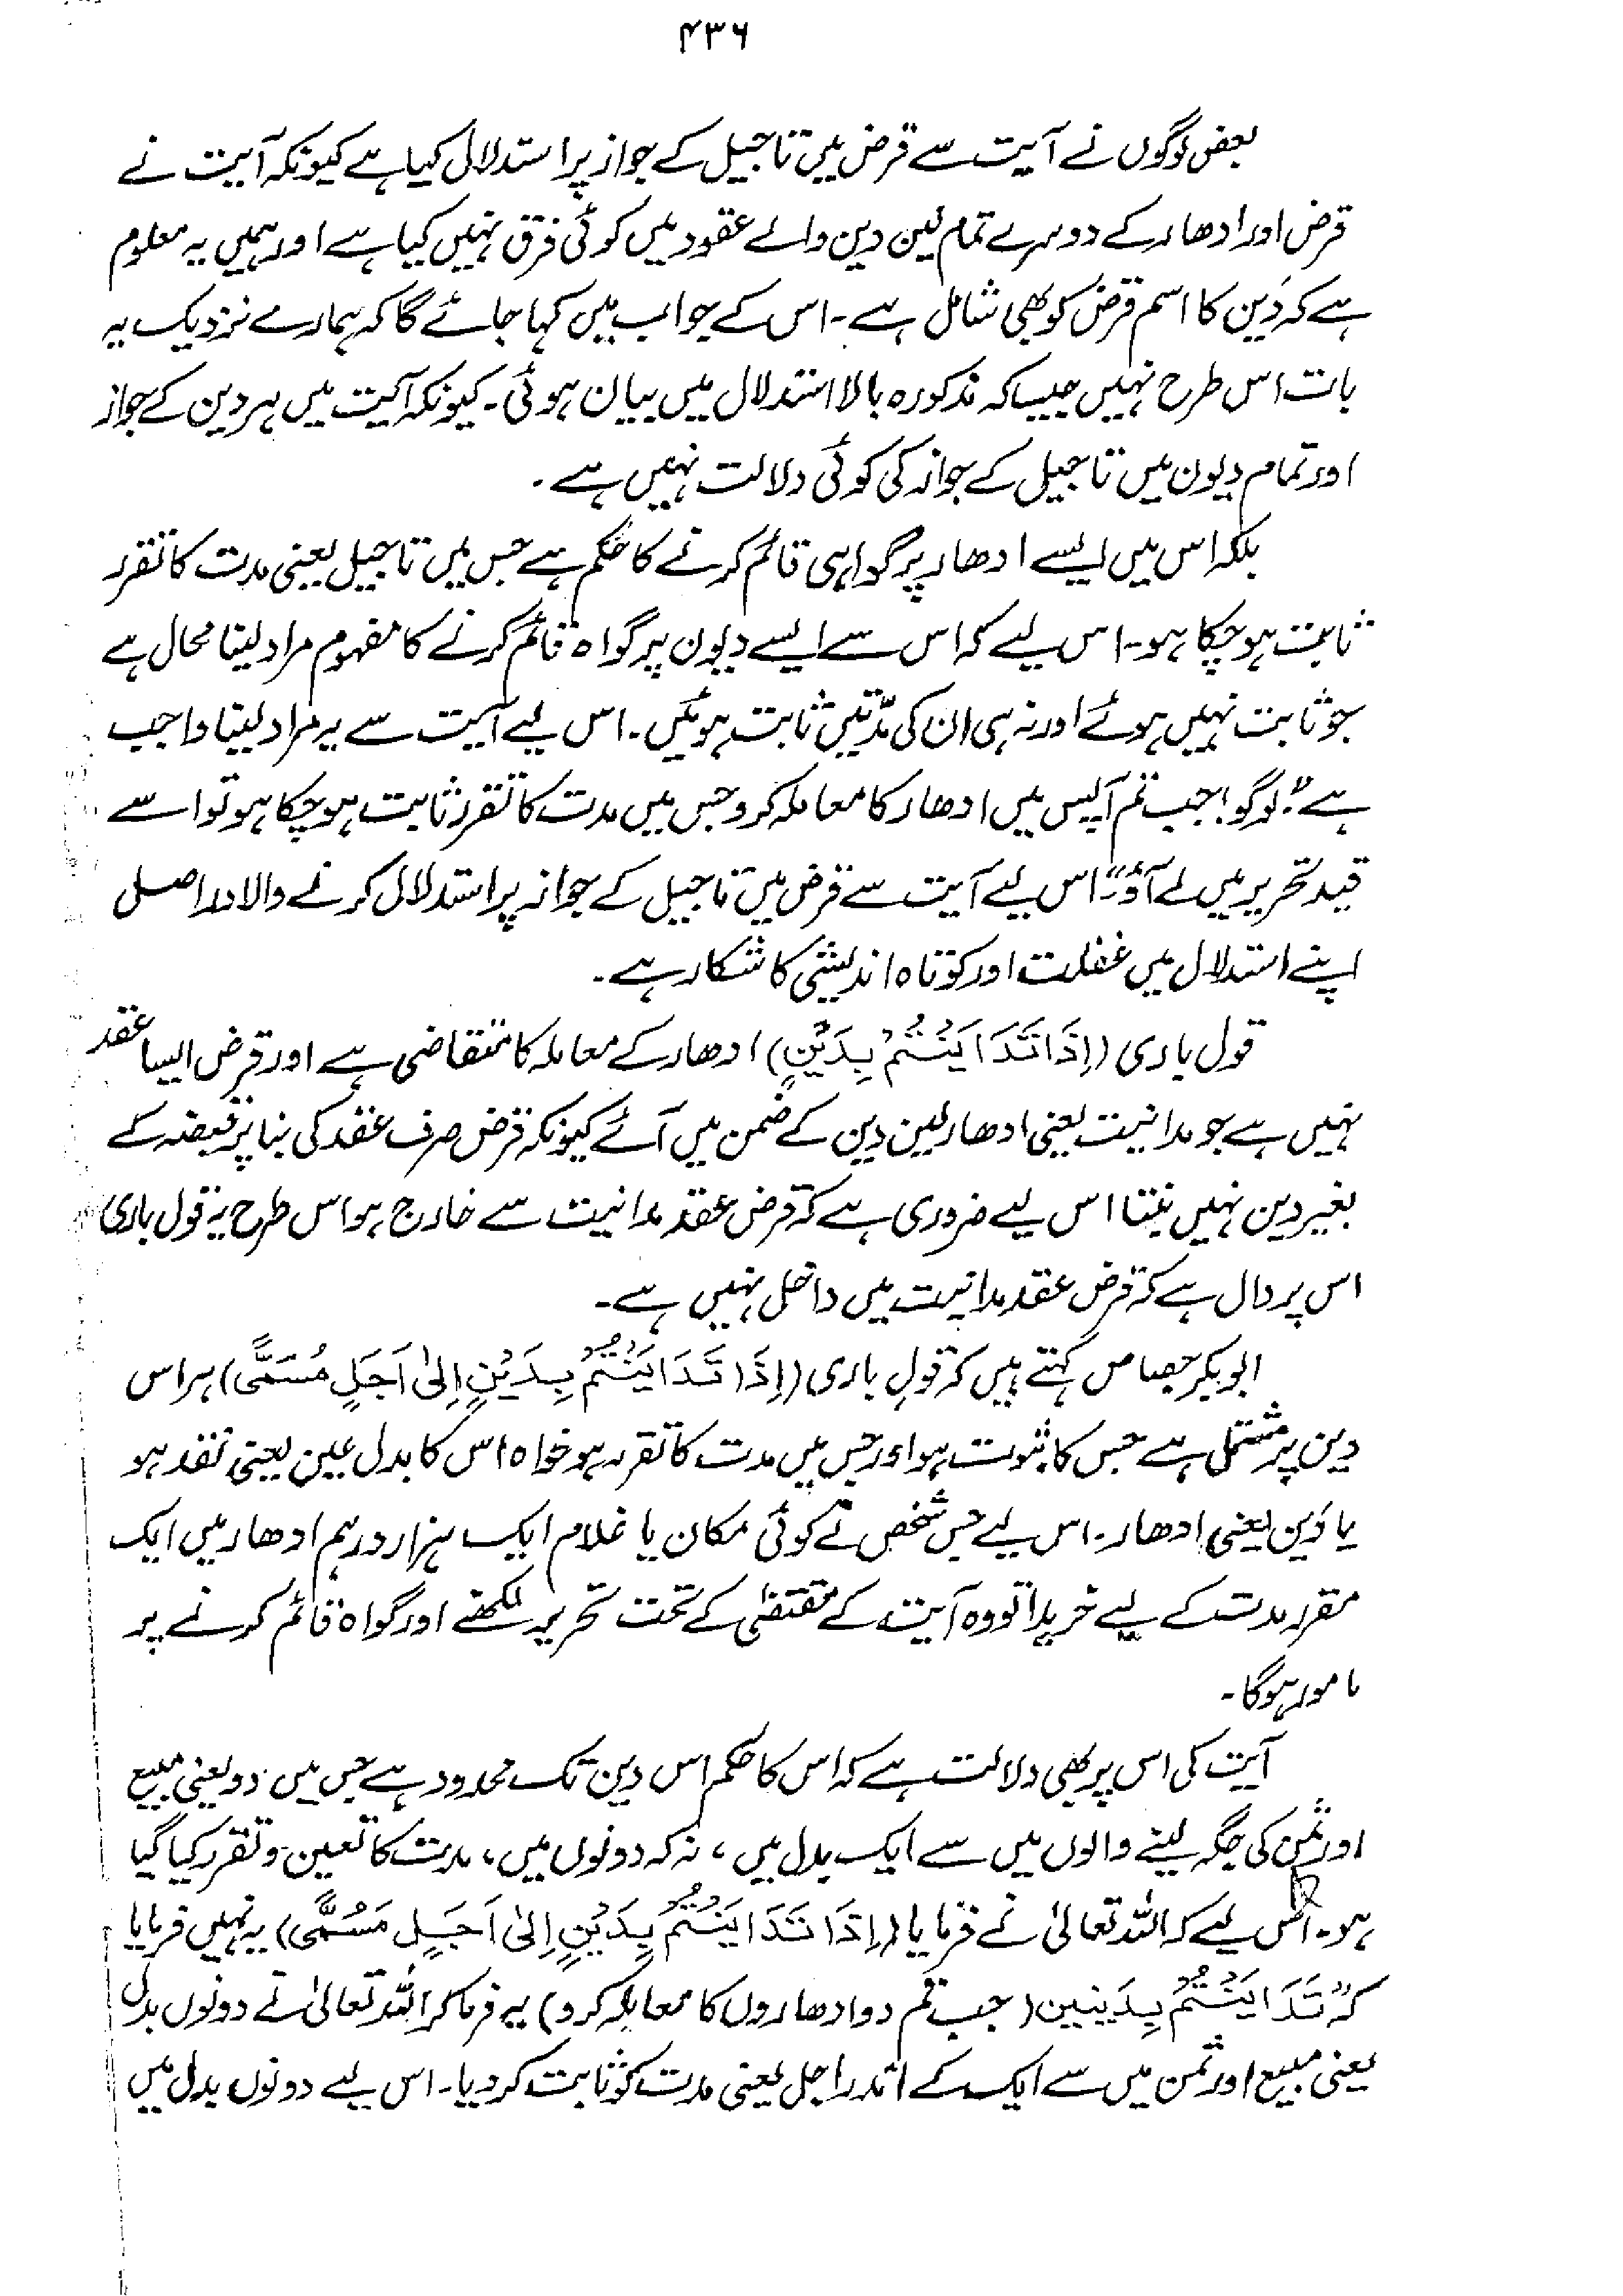 ۴۳۶
بعض لوگوں نے آیت سے قرض میں تاجیل کے جواز پر استدلال کیا ہے کیونکہ آیت نے
قرض اور ادھار کے دوسرے تمام لین دین والے عقود میں کوئی فرق نہیں کیا ہے اور ہمیں یہ معلوم
ہے کہ دَین کا اسم قرض کو بھی شامل ہے۔ اس کے جواب میں کہا جائے گا کہ ہمارے نزدیک یہ
بات اس طرح نہیں جیسا کہ مذکورہ بالا استدلال میں بیان ہوئی۔ کیونکہ آیت میں ہر دین کے جواز
اور تمام دیون میں تاجیل کے جواز کی کوئی دلالت نہیں ہے۔
بلکہ اس میں ایسے ادھار پر گواہی قائم کرنے کا حکم ہے جس میں تاجیل یعنی مدت کا تقرر
ثابت ہو چکا ہو۔ اس لیے کہ اس سے ایسے دیون پر گواہ قائم کرنے کا مفہوم مراد لینا محال ہے
جو ثابت نہیں ہوئے اور نہ ہی ان کی مدّتیں ثابت ہوئیں۔ اس لیے آیت سے یہ مراد لینا واجب
ہے "لوگو! جب تم آپس میں ادھار کا معاملہ کرو جس میں مدت کا تقرر ثابت ہو چکا ہو تو اسے
قید تحریر میں لے آؤ" اس لیے آیت سے قرض میں تاجیل کے جواز پر استدلال کرنے والا دراصل
اپنے استدلال میں غفلت اور کوتاہ اندیشی کا شکار ہے۔
قول باری (اِذَا تَدَایَنْتُمْ بِدَیْنٍ) ادھار کے معاملہ کا متقاضی ہے اور قرض ایسا عقد
نہیں ہے جو مداینت یعنی ادھار لین دین کے ضمن میں آئے کیونکہ قرض صرف عقد کی بنا پر قبضہ کے
بغیر دین نہیں بنتا اس لیے ضروری ہے کہ قرض عقد مداینت سے خارج ہو اس طرح یہ قول باری
اس پر دال ہے کہ قرض عقد مداینت میں داخل نہیں ہے۔
ابوبکر جصاص کہتے ہیں کہ قولِ باری (اِذَا تَدَایَنْتُمْ بِدَیْنٍ اِلیٰ اَجَلٍ مُسَمًّی) ہر اس
دین پر مشتمل ہے جس کا ثبوت ہو اور جس میں مدت کا تقرر ہو خواہ اس کا بدل عین یعنی نقد ہو
یا دَین یعنی ادھار۔ اس لیے جس شخص نے کوئی مکان یا غلام ایک ہزار درہم ادھار میں ایک
مقررہ مدت کے لیے خریدا تو وہ آیت کے مقتضٰی کے تحت تحریر لکھنے اور گواہ قائم کرنے پر
مامور ہوگا۔
آیت کی اس پر بھی دلالت ہے کہ اس کا حکم اس دین تک محدود ہے جس میں دو یعنی مبیع
اور ثمن کی جگہ لینے والوں میں سے ایک بدل میں، نہ کہ دونوں میں، مدت کا تعین و تقرر کیا گیا
ہو۔ اس لیے کہ اللہ تعالیٰ نے فرمایا (اِذَا تَدَایَنْتُمْ بِدَیْنٍ اِلیٰ اَجَلٍ مَسُمًّی) یہ نہیں فرمایا
کہ "تَدَایَنْتُمْ بِدَینین (جب تم دو ادھاروں کا معاملہ کرو) یہ فرما کر اللہ تعالیٰ نے دونوں بدل
یعنی مبیع اور ثمن میں سے ایک کے اندر اجل یعنی مدت کو ثابت کر دیا۔ اس لیے دونوں بدل میں